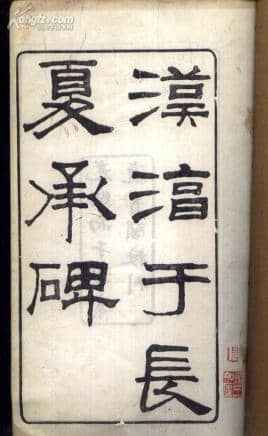 漢淳于長
夏承碑
Kongfz.com